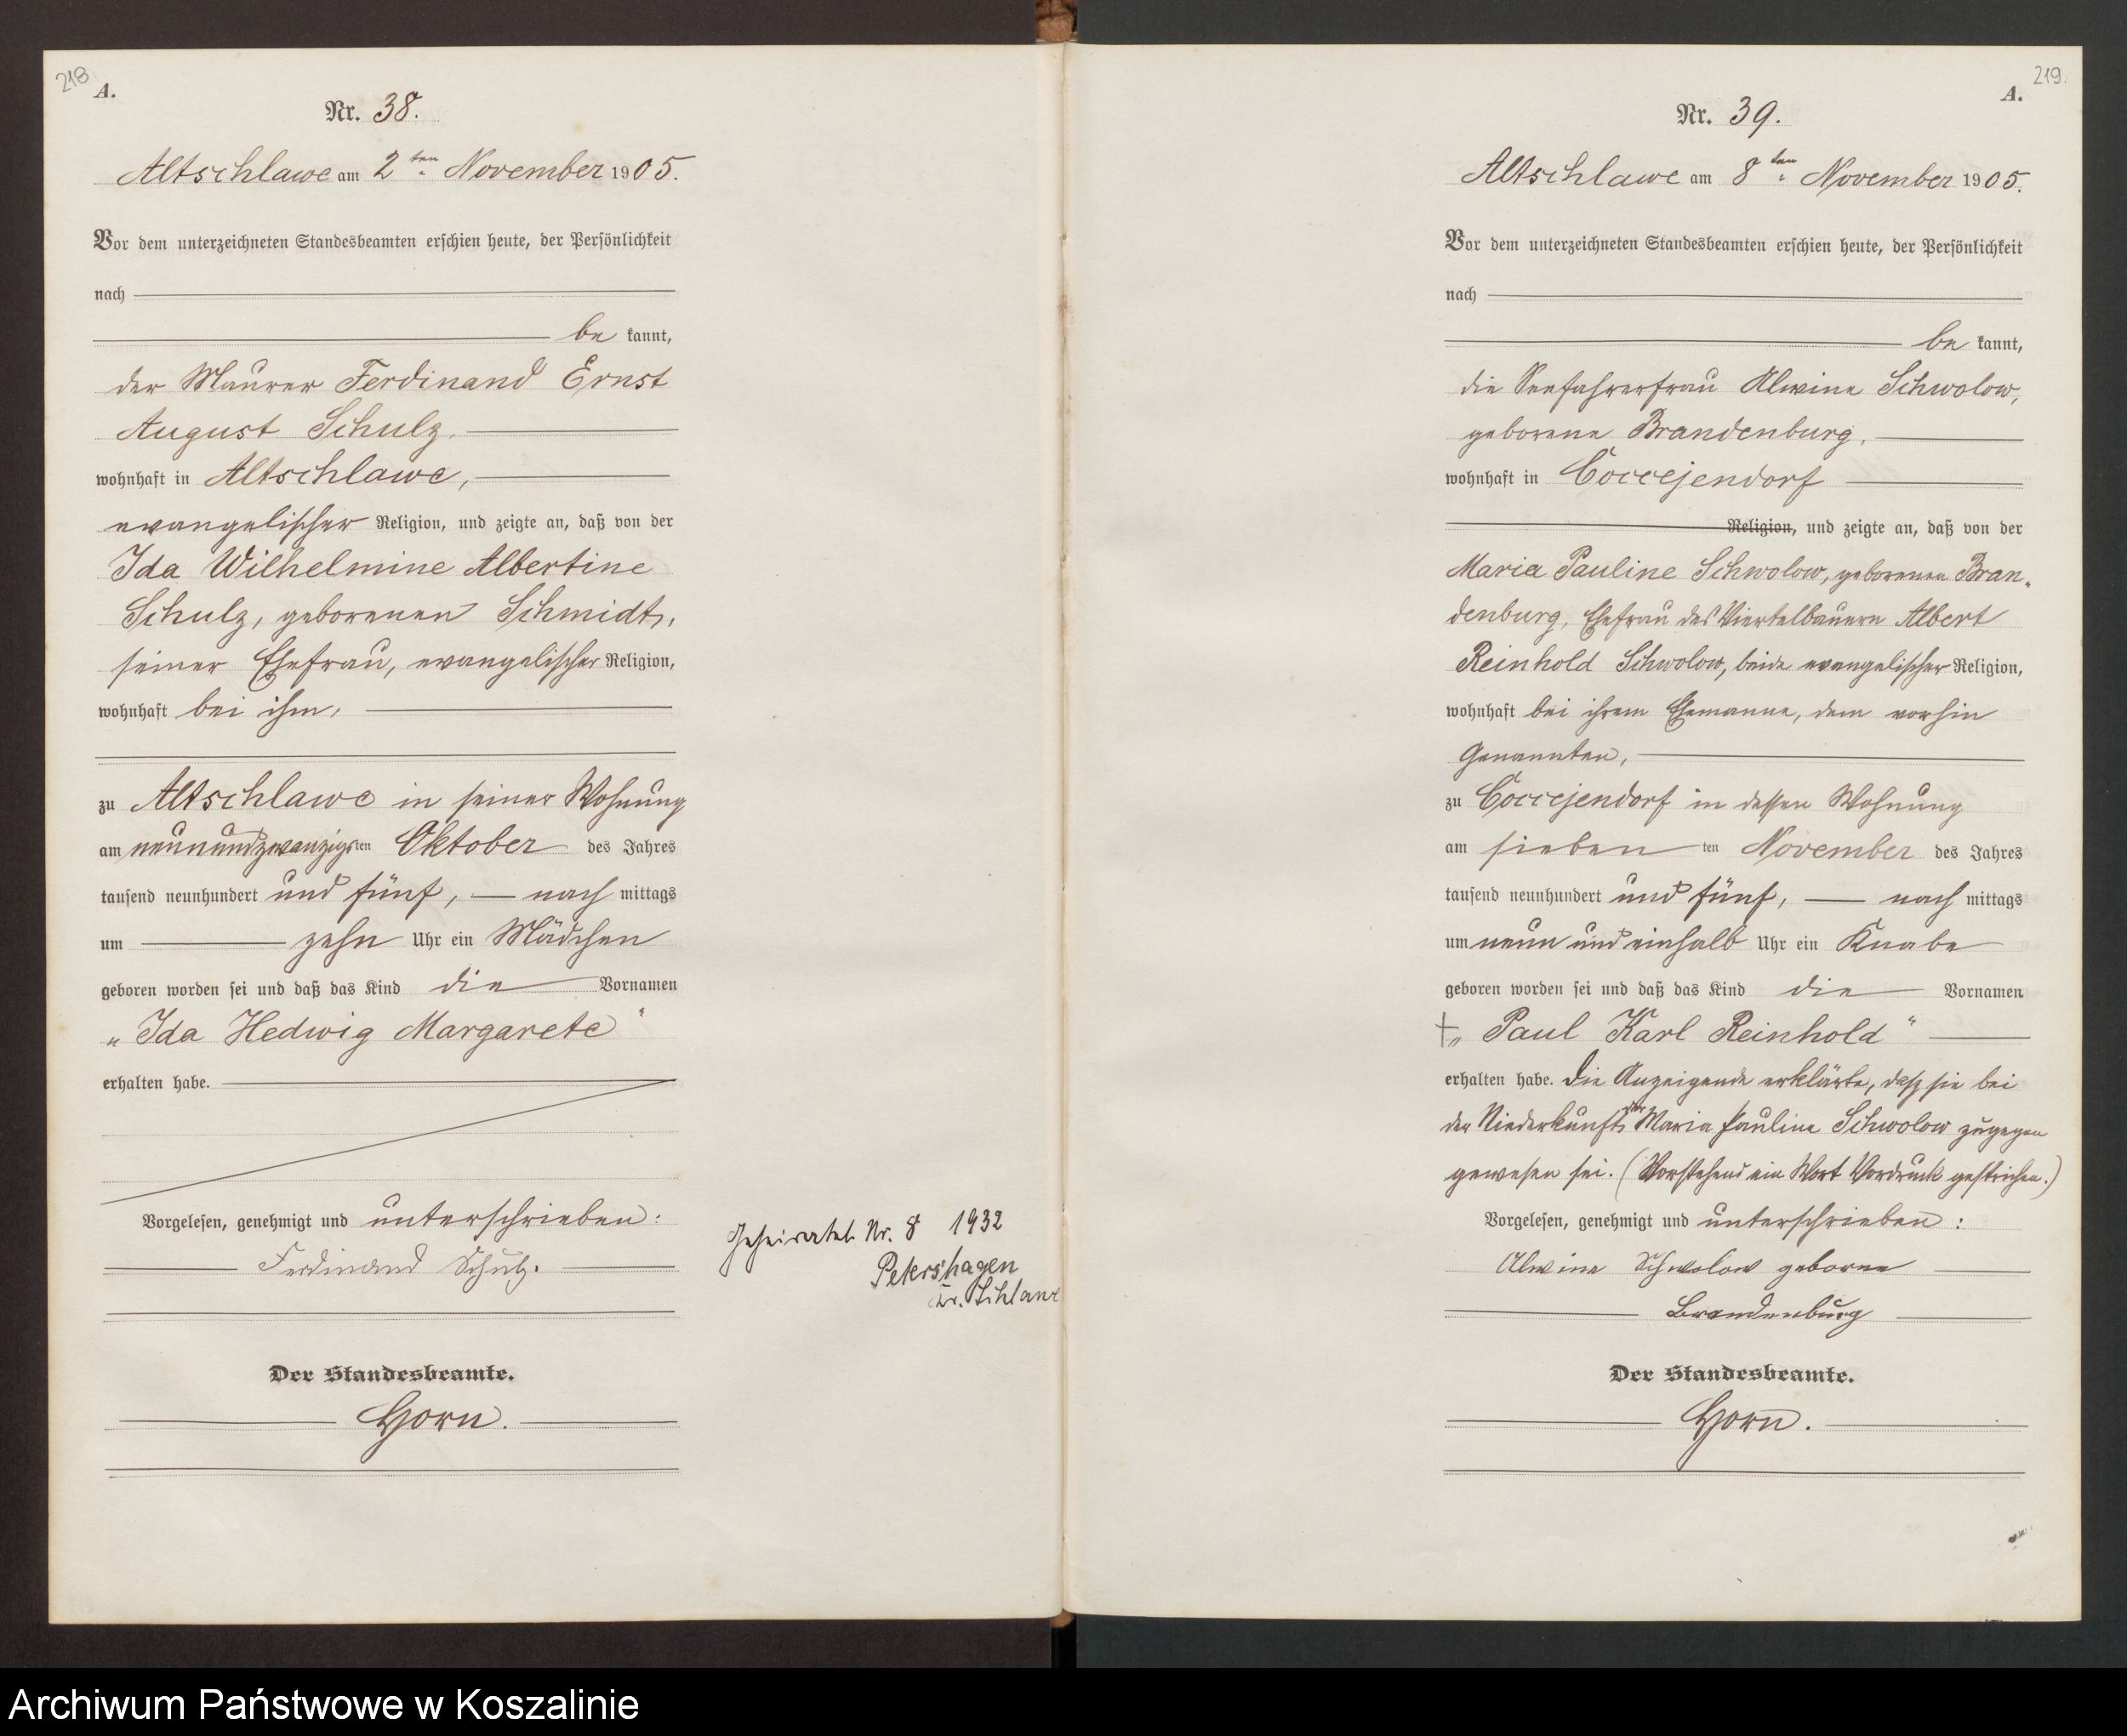 218
A.
Nr. 38.
Altschlawe am 2ten November 1905.
Vor dem unterzeichneten Standesbeamten erschien heute, der Persönlichkeit
nach
be kannt,
der Maurer Ferdinand Ernst
August Schulz,
wohnhaft in Altschlawe,
evangelischer Religion, und zeigte an, daß von der
Ida Wilhelmine Albertine
Schulz, geborenen Schmidt,
seiner Ehefrau, evangelischer Religion,
wohnhaft bei ihm,
zu Altschlawe in seiner Wohnung
am neunundzwanzigsten Oktober des Jahres
tausend neunhundert und fünf, — nach mittags
um zehn Uhr ein Mädchen
geboren worden sei und daß das Kind die Vornamen
„Ida Hedwig Margarete"
erhalten habe.
Vorgelesen, genehmigt und unterschrieben:
Ferdinand Schulz.
Der Standesbeamte.
Horn.
Geheiratet Nr. 8 1932
Petershagen
Kr. Schlawe
219.
A.
Nr. 39.
Altschlawe am 8ten November 1905.
Vor dem unterzeichneten Standesbeamten erschien heute, der Persönlichkeit
nach
be kannt,
die Seefahrerfrau Alwine Schwolow,
geborene Brandenburg,
wohnhaft in Coccejendorf
Religion, und zeigte an, daß von der
Maria Pauline Schwolow, geborenen Bran-
denburg, Ehefrau des Viertelbauern Albert
Reinhold Schwolow, beide evangelischer Religion,
wohnhaft bei ihrem Ehemanne, dem vorhin
Genannten,
zu Coccejendorf in dessen Wohnung
am siebenten November des Jahres
tausend neunhundert und fünf, — nach mittags
um neun und einhalb Uhr ein Knabe
geboren worden sei und daß das Kind die Vornamen
† „Paul Karl Reinhold"
erhalten habe. Die Anzeigende erklärte, daß sie bei
der Niederkunft der Maria Pauline Schwolow zugegen
gewesen sei. (Vorstehend ein Wort Vordruck gestrichen.)
Vorgelesen, genehmigt und unterschrieben:
Alwine Schwolow geborne
Brandenburg
Der Standesbeamte.
Horn.
Archiwum Państwowe w Koszalinie